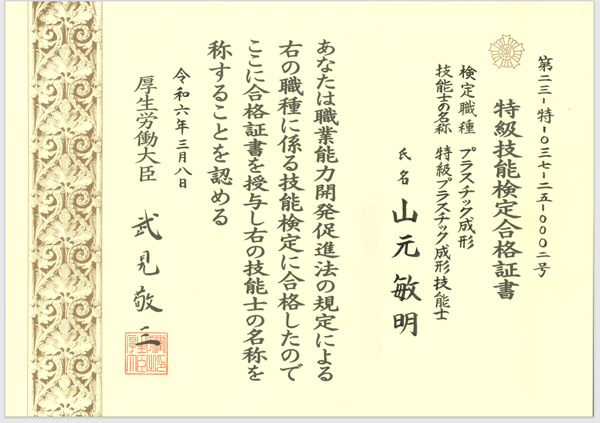 第二三-特-〇三七-二五-〇〇〇二号
特級技能検定合格証書
検定職種 プラスチック成形
技能士の名称 特級プラスチック成形技能士
氏名 山元敏明
あなたは職業能力開発促進法の規定による
右の職種に係る技能検定に合格したので
ここに合格証書を授与し右の技能士の名称を
称することを認める
令和六年三月八日
厚生労働大臣 武見敬三